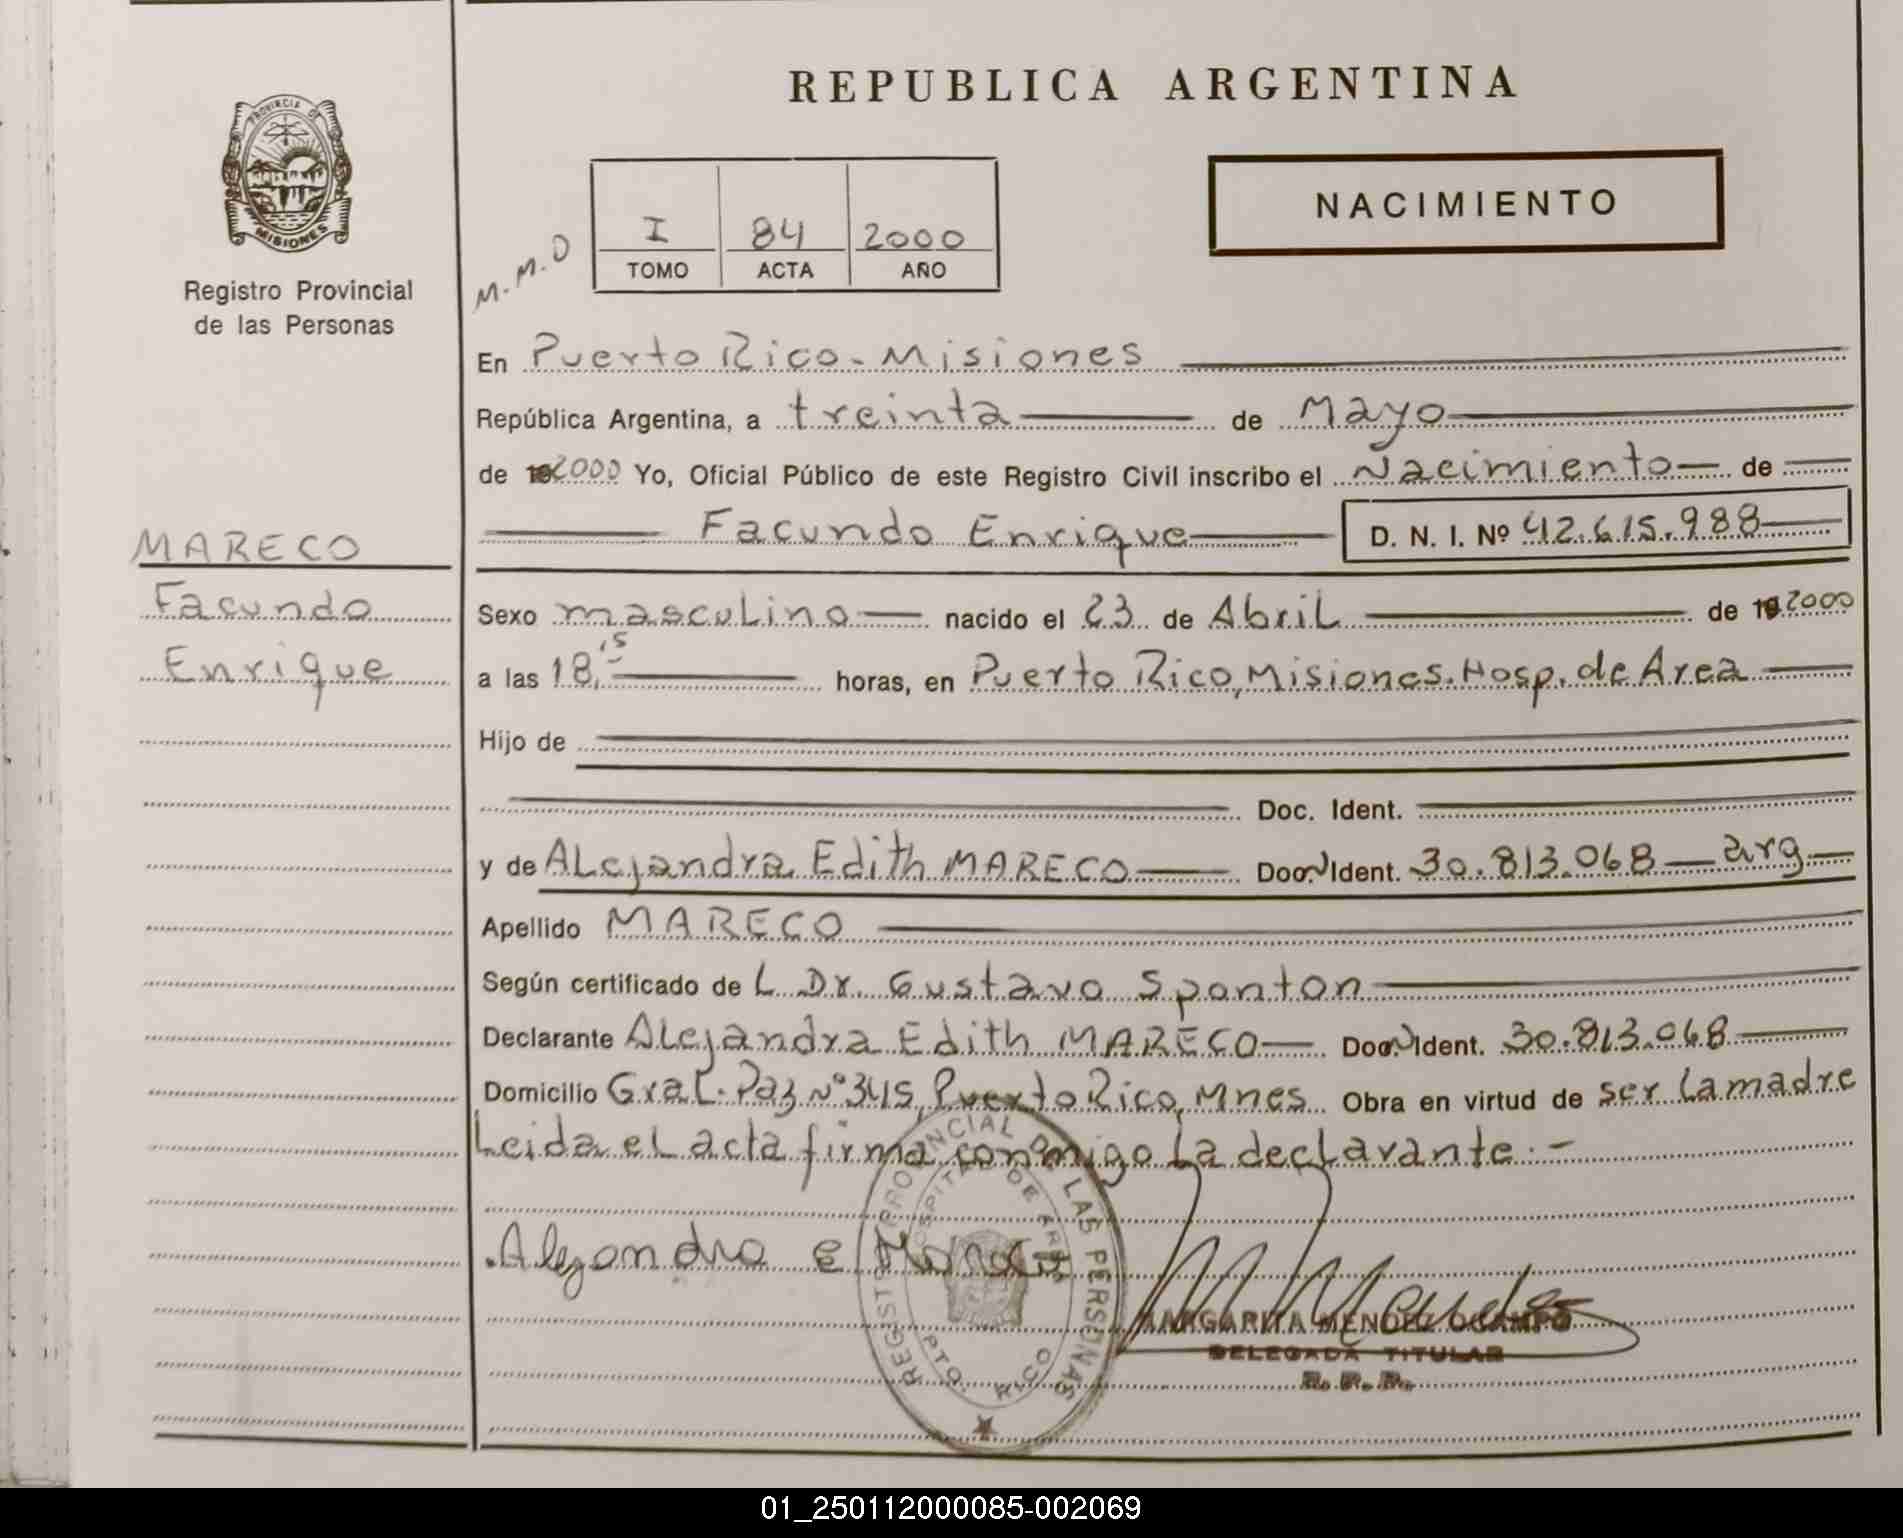 REPUBLICA ARGENTINA
PROVINCIA DE
MISIONES
Registro Provincial
de las Personas
NACIMIENTO
M.M.O
I 84 2000
TOMO ACTA AÑO
En Puerto Rico - Misiones
República Argentina, a treinta de Mayo
de 2000 Yo, Oficial Público de este Registro Civil inscribo el Nacimiento de
Facundo Enrique D. N. I. Nº 42.615.988
MARECO
Facundo
Enrique
Sexo masculino nacido el 23 de Abril de 2000
a las 18,15 horas, en Puerto Rico, Misiones. Hosp. de Area
Hijo de
Doc. Ident.
y de Alejandra Edith MARECO Doc. Ident. 30.813.068 arg
Apellido MARECO
Según certificado de L Dr. Gustavo Sponton
Declarante Alejandra Edith MARECO Doc. Ident. 30.813.068
Domicilio Gral. Paz Nº 345, Puerto Rico, Mnes Obra en virtud de ser la madre
Leida el acta firma conmigo la declarante.-
Alejandra E
REGISTRO PROVINCIAL DE LAS PERSONAS
HOSPITAL DE AREA
PTO. RICO
M Mendez
MARGARITA MENDEZ OCAMPO
DELEGADA TITULAR
R. P. P.
01_250112000085-002069